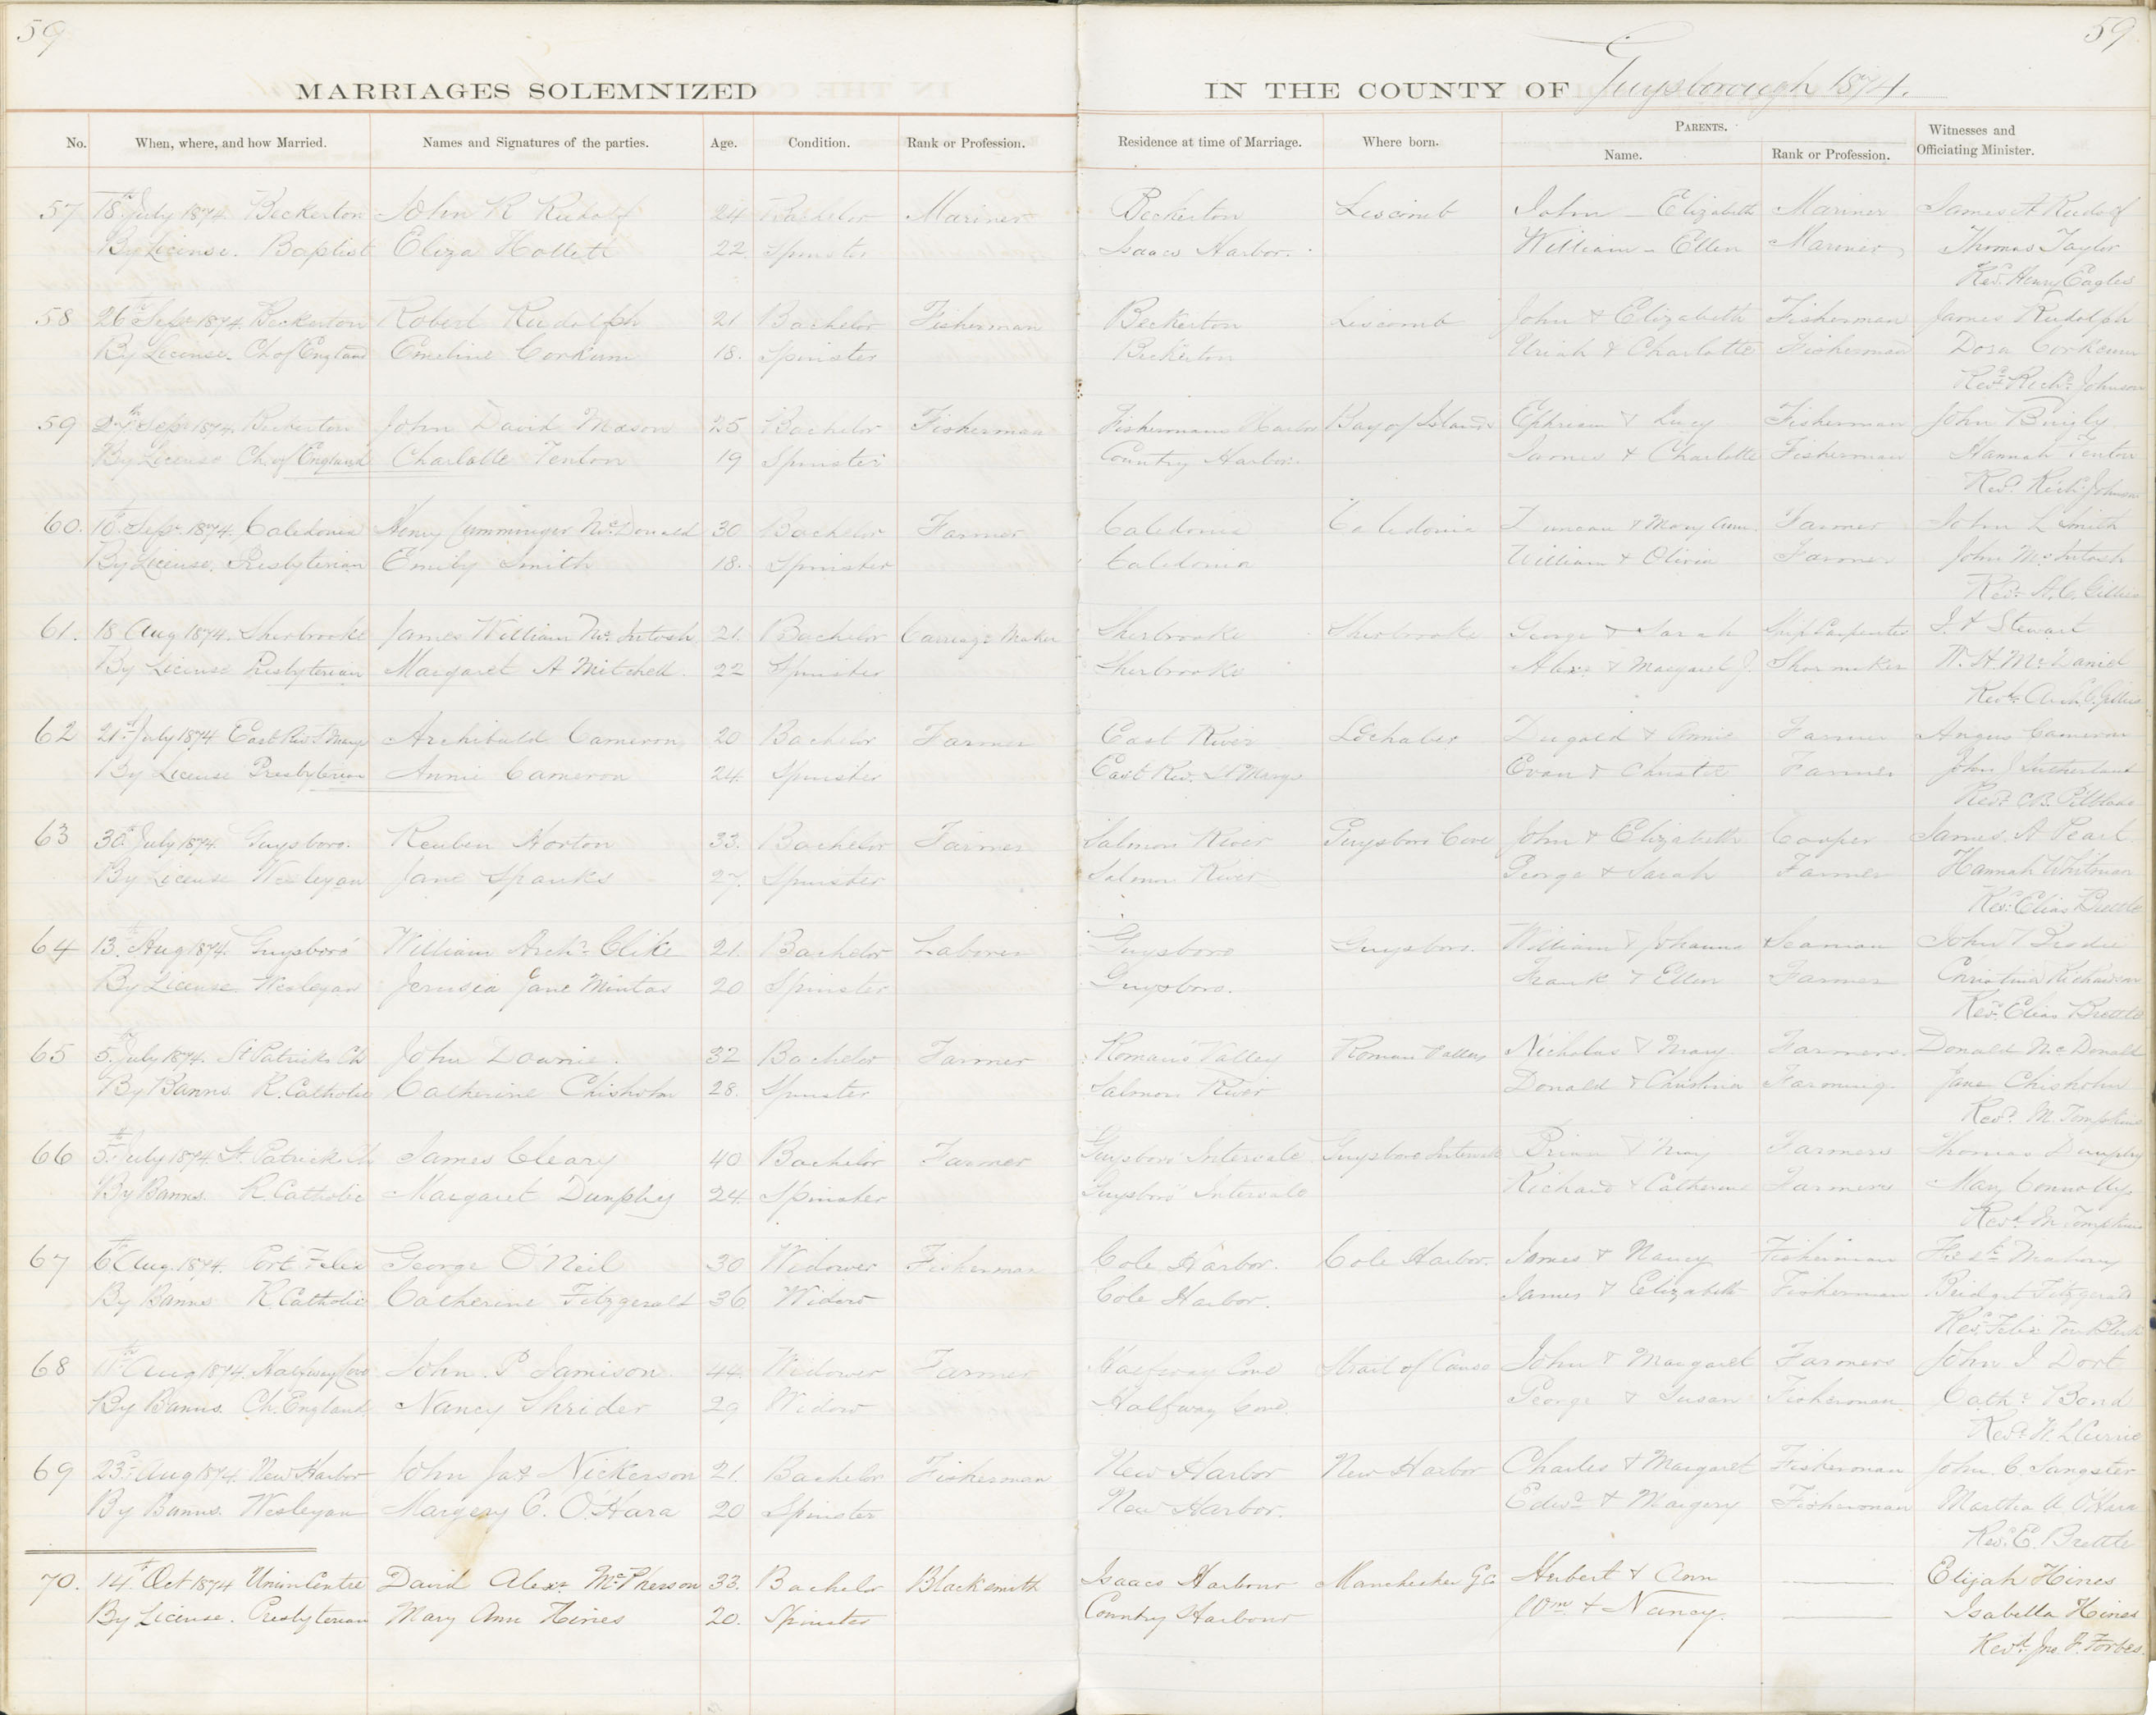 59
59
MARRIAGES SOLEMNIZED IN THE COUNTY OF Guysborough 1874.
No. When, where, and how Married. Names and Signatures of the parties. Age. Condition. Rank or Profession. Residence at time of Marriage. Where born. PARENTS. Name. Rank or Profession. Witnesses and Officiating Minister.
57 18th July 1874. Beckerton John R Rudolf 24 Bachelor Mariner Beckerton Liscomb John - Elizabeth Mariner James A Rudolf
By License. Baptist Eliza Hollett 22. Spinster Isaacs Harbor. William - Ellen Mariner Thomas Taylor
Revd. Henry Eagles
58 26th Sept 1874. Beckerton Robert Rudolph 21 Bachelor Fisherman Beckerton Liscomb John & Elizabeth Fisherman James Rudolph
By License. Ch of England Emeline Corkum 18. Spinster Beckerton Uriah & Charlotte Fisherman Dora Corkum
Revd. Richd. Johnson
59 Sep 1874. Beckerton John David Mason 25 Bachelor Fisherman Fishermans Harbor Bay of Islands Ephriam & Lucy Fisherman John Bingly
By License Ch. of England Charlotte Fenton 19 Spinster Country Harbor James & Charlotte Fisherman Hannah Fenton
Revd. Richd. Johnson
60. 10th Sept. 1874. Caledonia Henry Cumminger McDonald 30 Bachelor Farmer Caledonia Caledonia Duncan & Mary Ann. Farmer John L Smith
By License. Presbyterian Emily Smith 18. Spinster Caledonia William & Olivia Farmer John McIntosh
Revd. A.C. Gillies
61. 18 Aug 1874. Sherbrooke James William McIntosh 21. Bachelor Carriage Maker Sherbrooke Sherbrooke George & Sarah Ship Carpenter Stewart
By License Presbyterian Margaret A Mitchell. 22 Spinster Sherbrooke Alexr. & Margaret J. Shoemaker McDaniel
Revd. Gillies
62 21st July 1874 East Riv. St Marys Archibald Cameron 20 Bachelor Farmer East River Lochaber Dugald & Annie Farmer Angus Cameron
By License Presbyterian Annie Cameron 24. Spinster East Riv. St Marys Evan & Christie Farmer John J Sutherland
Revd. C.B. Pitblado
63 30th July 1874. Guysboro. Reuben Horton 33. Bachelor Farmer Salmon River Guysboro Cove John & Elizabeth Cooper James A Peart.
By License Wesleyan Jane Spanks 27. Spinster Salmon River George & Sarah Farmer Hannah Whitman
Revd. Elias Brettle
64 13th Aug 1874. Guysboro William Archd. Clike 21. Bachelor Laborer Guysboro Guysboro. William & Johanna Seaman John
By License Wesleyan Jerusia Jane Mintas 20 Spinster Guysboro. Frank & Ellen Farmer Christina Richardson
Revd. Elias Brettle
65 5th July 1874. St Patricks Ch John Downie. 32 Bachelor Farmer Romans Valley Roman Valley Nicholas & Mary. Farmers. Donald McDonald
By Banns. R. Catholic Catherine Chisholm 28. Spinster Salmon River Donald & Christina Farming. Jane Chisholm
Revd. M. Tompkins
66 5th July 1874 St. Patricks Ch James Cleary 40 Bachelor Farmer Guysboro Intervale Guysboro Intervale Brian & Mary Farmers Thomas Dunphy
By Banns. R Catholic Margaret Dunphy 24. Spinster Guysboro Intervale Richard & Catherine Farmers Mary Connolly.
Revd. M Tompkins
67 6th Aug. 1874. Port Felix George O'Neil 30 Widower Fisherman Cole Harbor. Cole Harbor. James & Nancy Fisherman Mahony
By Banns R. Catholic Catherine Fitzgerald 36 Widow Cole Harbor. James & Elizabeth Fisherman Bridget Fitzgerald
Revd. Felix Van Blerk
68 11th Aug 1874. Halfway Cove John P Jamison. 44 Widower Farmer Halfway Cove Strait of Canso John & Margaret Farmers John I Dort
By Banns. Ch. England Nancy Shrider 29 Widow Halfway Cove. George & Susan Fisherman Cathr. Bond
Revd. Currie
69 23rd Aug 1874. New Harbor John Jas Nickerson 21. Bachelor Fisherman New Harbor New Harbor Charles & Margaret Fisherman John. C. Sangster
By Banns. Wesleyan Margery C. O'Hara 20 Spinster New Harbor. Edwd. & Margery Fisherman Martha A O'Hara
Revd. E. Brettle
70. 14th Oct 1874 Union Centre David Alexr. McPherson 33. Bachelor Blacksmith Isaacs Harbour Manchester G.Co Herbert & Ann Elijah Hines
By License. Presbyterian Mary Ann Hines 20. Spinster Country Harbour Wm & Nancy. Isabella Hines
Revd. Jno. F. Forbes.